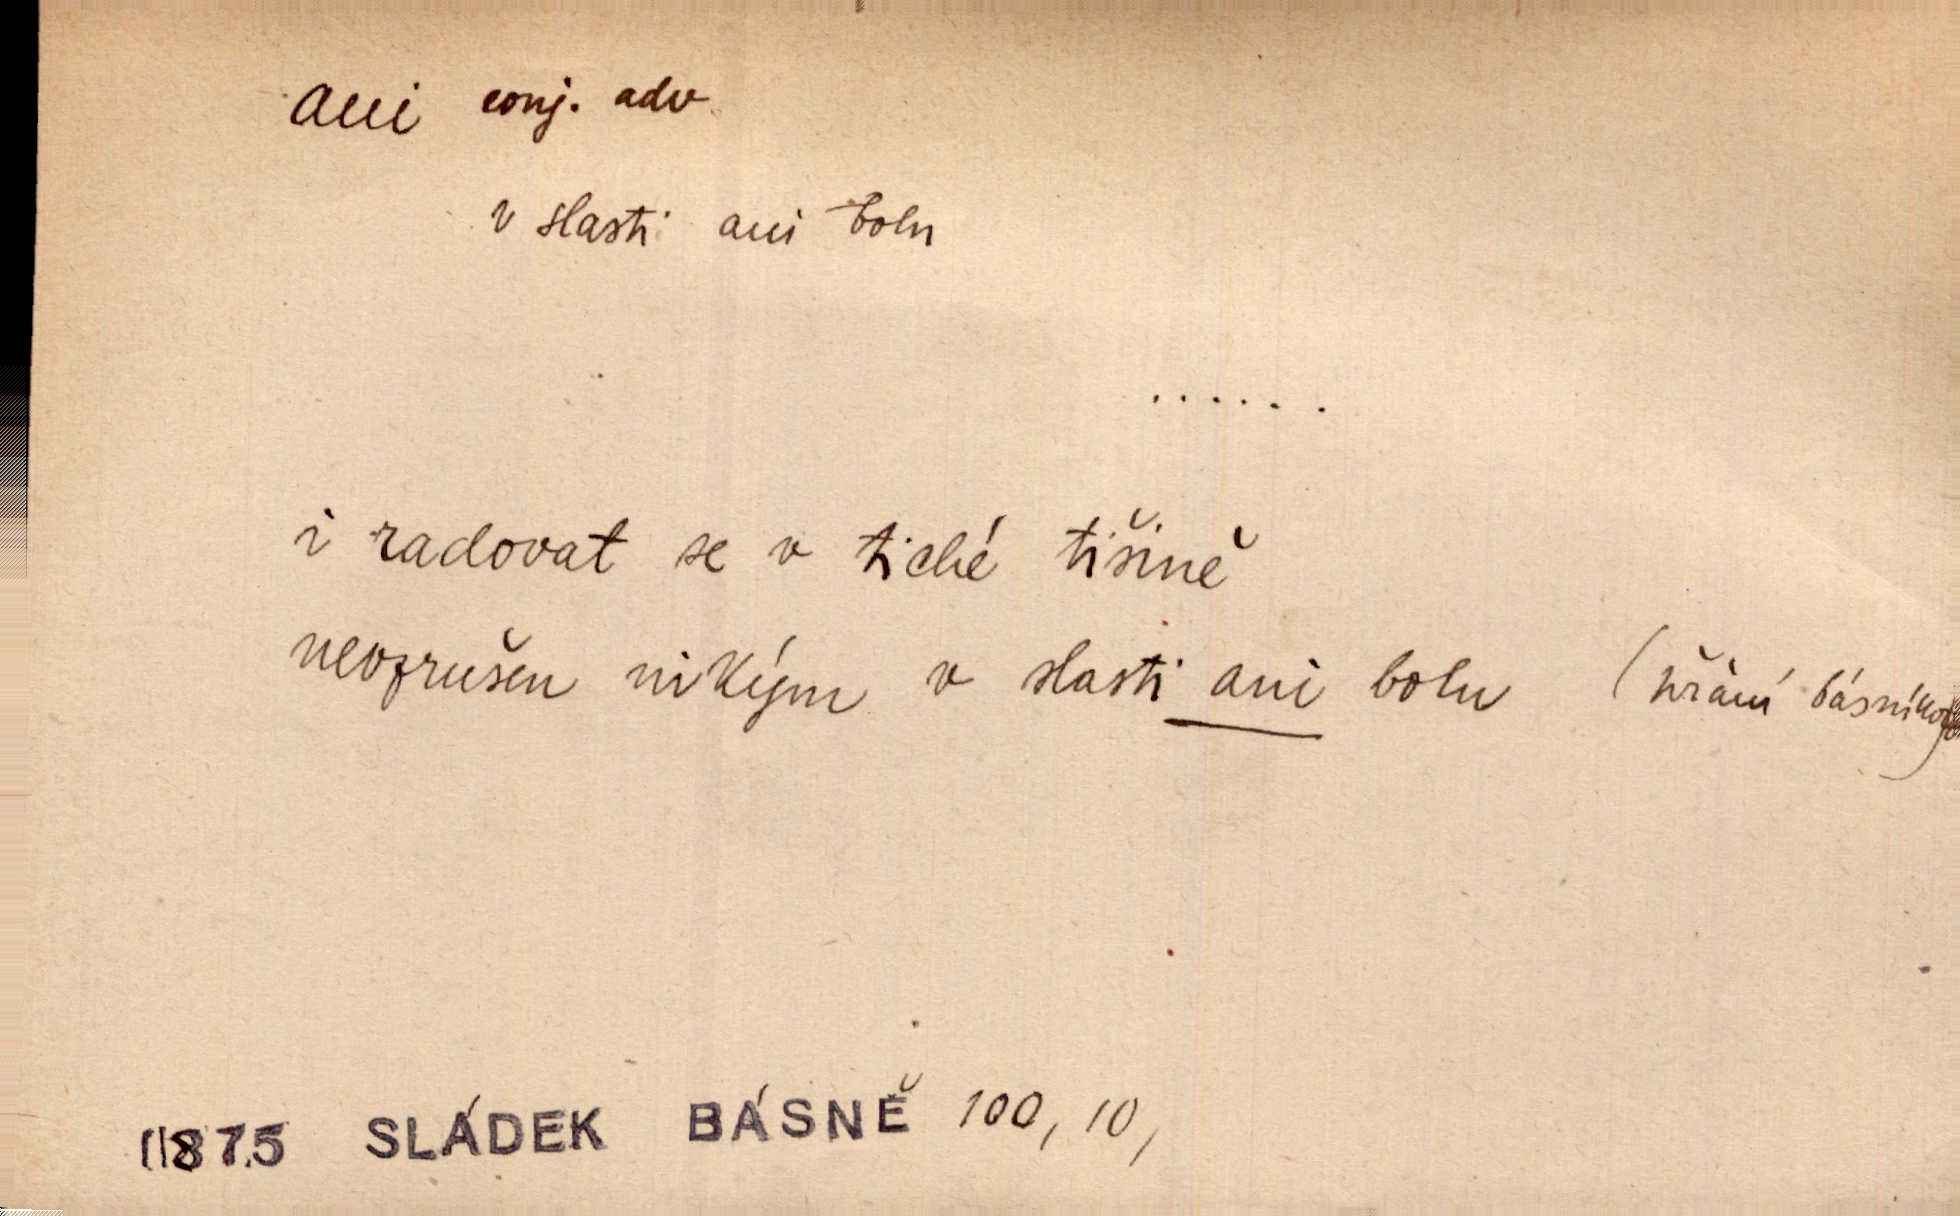 ani conj. adv
v slasti ani bolu
. . . . . .
i radovat se v tiché tišině
nevzrušen nikým v slasti ani bolu (přání básníkovo)
1875 SLÁDEK BÁSNĚ 100, 10,